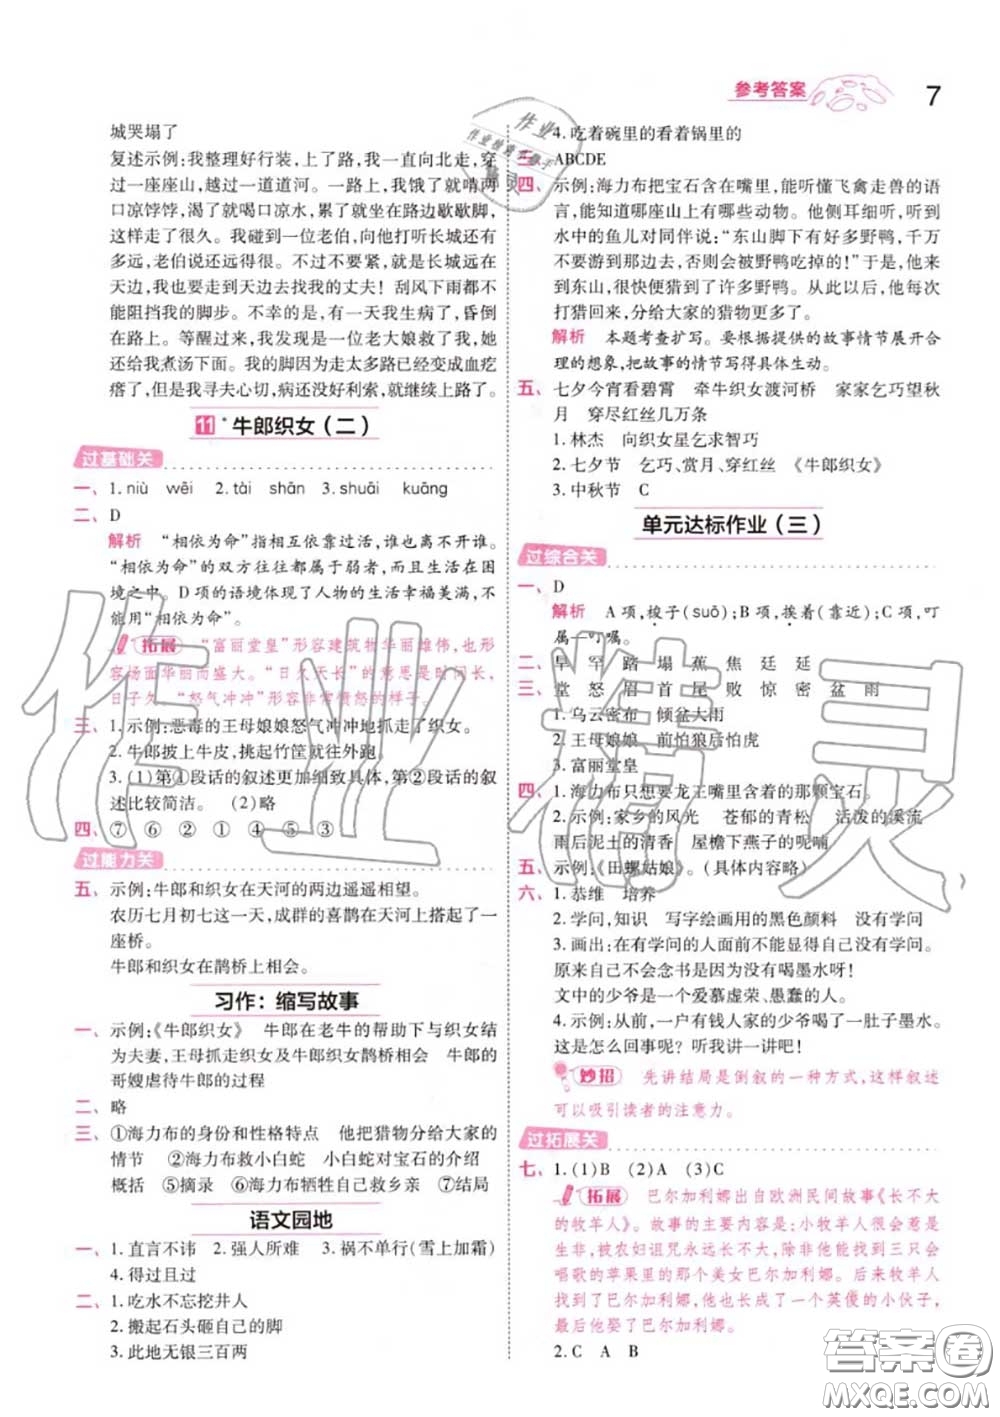 参考答案
7
城哭塌了
复述示例:我整理好行装,上了路,我一直向北走,穿
过一座座山,越过一道道河。一路上,我饿了就啃两
口凉饽饽,渴了就喝口凉水,累了就坐在路边歇歇脚,
这样走了很久。我碰到一位老伯,向他打听长城还有
多远,老伯说还远得很。不过不要紧,就是长城远在
天边,我也要走到天边去找我的丈夫!刮风下雨都不
能阻挡我的脚步。不幸的是,有一天我也生病了,昏倒
在路上。等醒过来,我发现是一位老大娘救了我,她
还给我煮汤下面。我的脚因为走太多路已经变成血疙
瘩了,但是我寻夫心切,病还没好利索,就继续上路了。
11* 牛郎织女(二)
过基础关
一、1.niù wēi 2.tài shān 3.shuāi kuāng
二、D
解析 “相依为命”指相互依靠过活,谁也离不开谁。
“相依为命”的双方往往都属于弱者,而且大都身处困
境之中。D项的语境体现了人物的生活幸福美满,不
能用“相依为命”。
拓展 “富丽堂皇”形容建筑物华丽雄伟,也形
容场面华丽而盛大。“日久天长”的意思是时间长,
日子久。“怒气冲冲”形容非常愤怒的样子。
三、1.示例:恶毒的王母娘娘怒气冲冲地抓走了织女。
2.牛郎披上牛皮,挑起竹筐就往外跑。
3.(1)第④段话的叙述更加细致具体,第②段话的叙
述比较简洁。 (2)略
四、⑦ ⑥ ② ① ④ ⑤ ③
过能力关
五、示例:牛郎和织女在天河的两边遥遥相望。
农历七月初七这一天,成群的喜鹊在天河上搭起了一
座桥。
牛郎和织女在鹊桥上相会。
习作:缩写故事
一、示例:《牛郎织女》 牛郎在老牛的帮助下与织女结
为夫妻,王母抓走织女及牛郎织女鹊桥相会 牛郎的
哥嫂虐待牛郎的过程
二、略
三、①海力布的身份和性格特点 他把猎物分给大家的
情节 ②海力布救小白蛇 小白蛇对宝石的介绍
概括 ⑤摘录 ⑥海力布牺牲自己救乡亲 ④③⑦
语文园地
一、1.直言不讳 2.强人所难 3.祸不单行(雪上加霜)
4.得过且过
二、1.吃水不忘挖井人
2.搬起石头砸自己的脚
3.此地无银三百两
4.吃着碗里的看着锅里的
三、ABCDE
四、示例:海力布把宝石含在嘴里,能听懂飞禽走兽的语
言,能知道哪座山上有哪些动物。他侧耳细听,听到
水中的鱼儿对同伴说:“东山脚下有好多野鸭,千万
不要游到那边去,否则会被野鸭吃掉的!”于是,他来
到东山,很快便猎到了许多野鸭。从此以后,他每次
打猎回来,分给大家的猎物更多了。
解析 本题考查扩写。要根据提供的故事情节展开合
理的想象,把故事的情节写得具体生动。
五、七夕今宵看碧霄 牵牛织女渡河桥 家家乞巧望秋
月 穿尽红丝几万条
1.林杰 向织女星乞求智巧
2.七夕节 乞巧、赏月、穿红丝 《牛郎织女》
3.中秋节 C
单元达标作业(三)
过综合关
一、D
解析 A项,梭子(suō);B项,挨着(靠近);C项,叮
属—叮嘱。
二、旱 罕 踏 塌 蕉 焦 廷 延
三、堂 怒 眉 首 尾 败 惊 密 盆 雨
1.乌云密布 倾盆大雨
2.王母娘娘 前怕狼后怕虎
3.富丽堂皇
四、1.海力布只想要龙王嘴里含着的那颗宝石。
2.示例:家乡的风光 苍郁的青松 活泼的溪流
雨后泥土的清香 屋檐下燕子的呢喃
五、示例:《田螺姑娘》。(具体内容略)
六、1.恭维 培养
2.学问,知识 写字绘画用的黑色颜料 没有学问
3.画出:在有学问的人面前不能显得自己没有学问。
原来自己不会念书是因为没有喝墨水呀!
文中的少爷是一个爱慕虚荣、愚蠢的人。
4.示例:从前,一户有钱人家的少爷喝了一肚子墨水。
这是怎么回事呢?听我讲一讲吧!
妙招 先讲结局是倒叙的一种方式,这样叙述
可以吸引读者的注意力。
过拓展关
七、1.(1)B (2)A (3)C
拓展 巴尔加利娜出自欧洲民间故事《长不大
的牧羊人》。故事的主要内容是:小牧羊人很会惹是
生非,被农妇诅咒永远长不大,除非他能找到三只会
唱歌的苹果里的那个美女巴尔加利娜。后来牧羊人
找到了巴尔加利娜,他也长成了一个英俊的小伙子,
最后他娶了巴尔加利娜。
2.C A B
作业精灵
答案圈
MXQE.COM